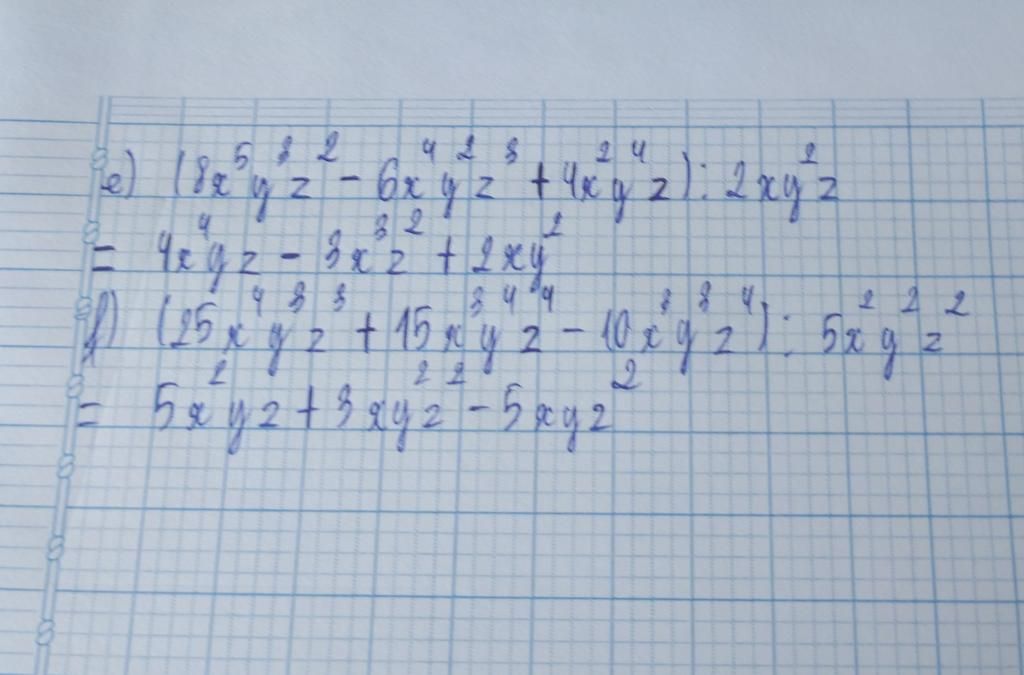 e) (8x⁵y³z² - 6x⁴y²z³ + 4x²y⁴z) : 2xy²z
= 4x⁴yz - 3x³z² + 2xy²
f) (25x⁴y³z³ + 15x³y⁴z⁴ - 10x³y³z⁴) : 5x²y²z²
= 5x²yz + 3xy²z² - 5xyz²